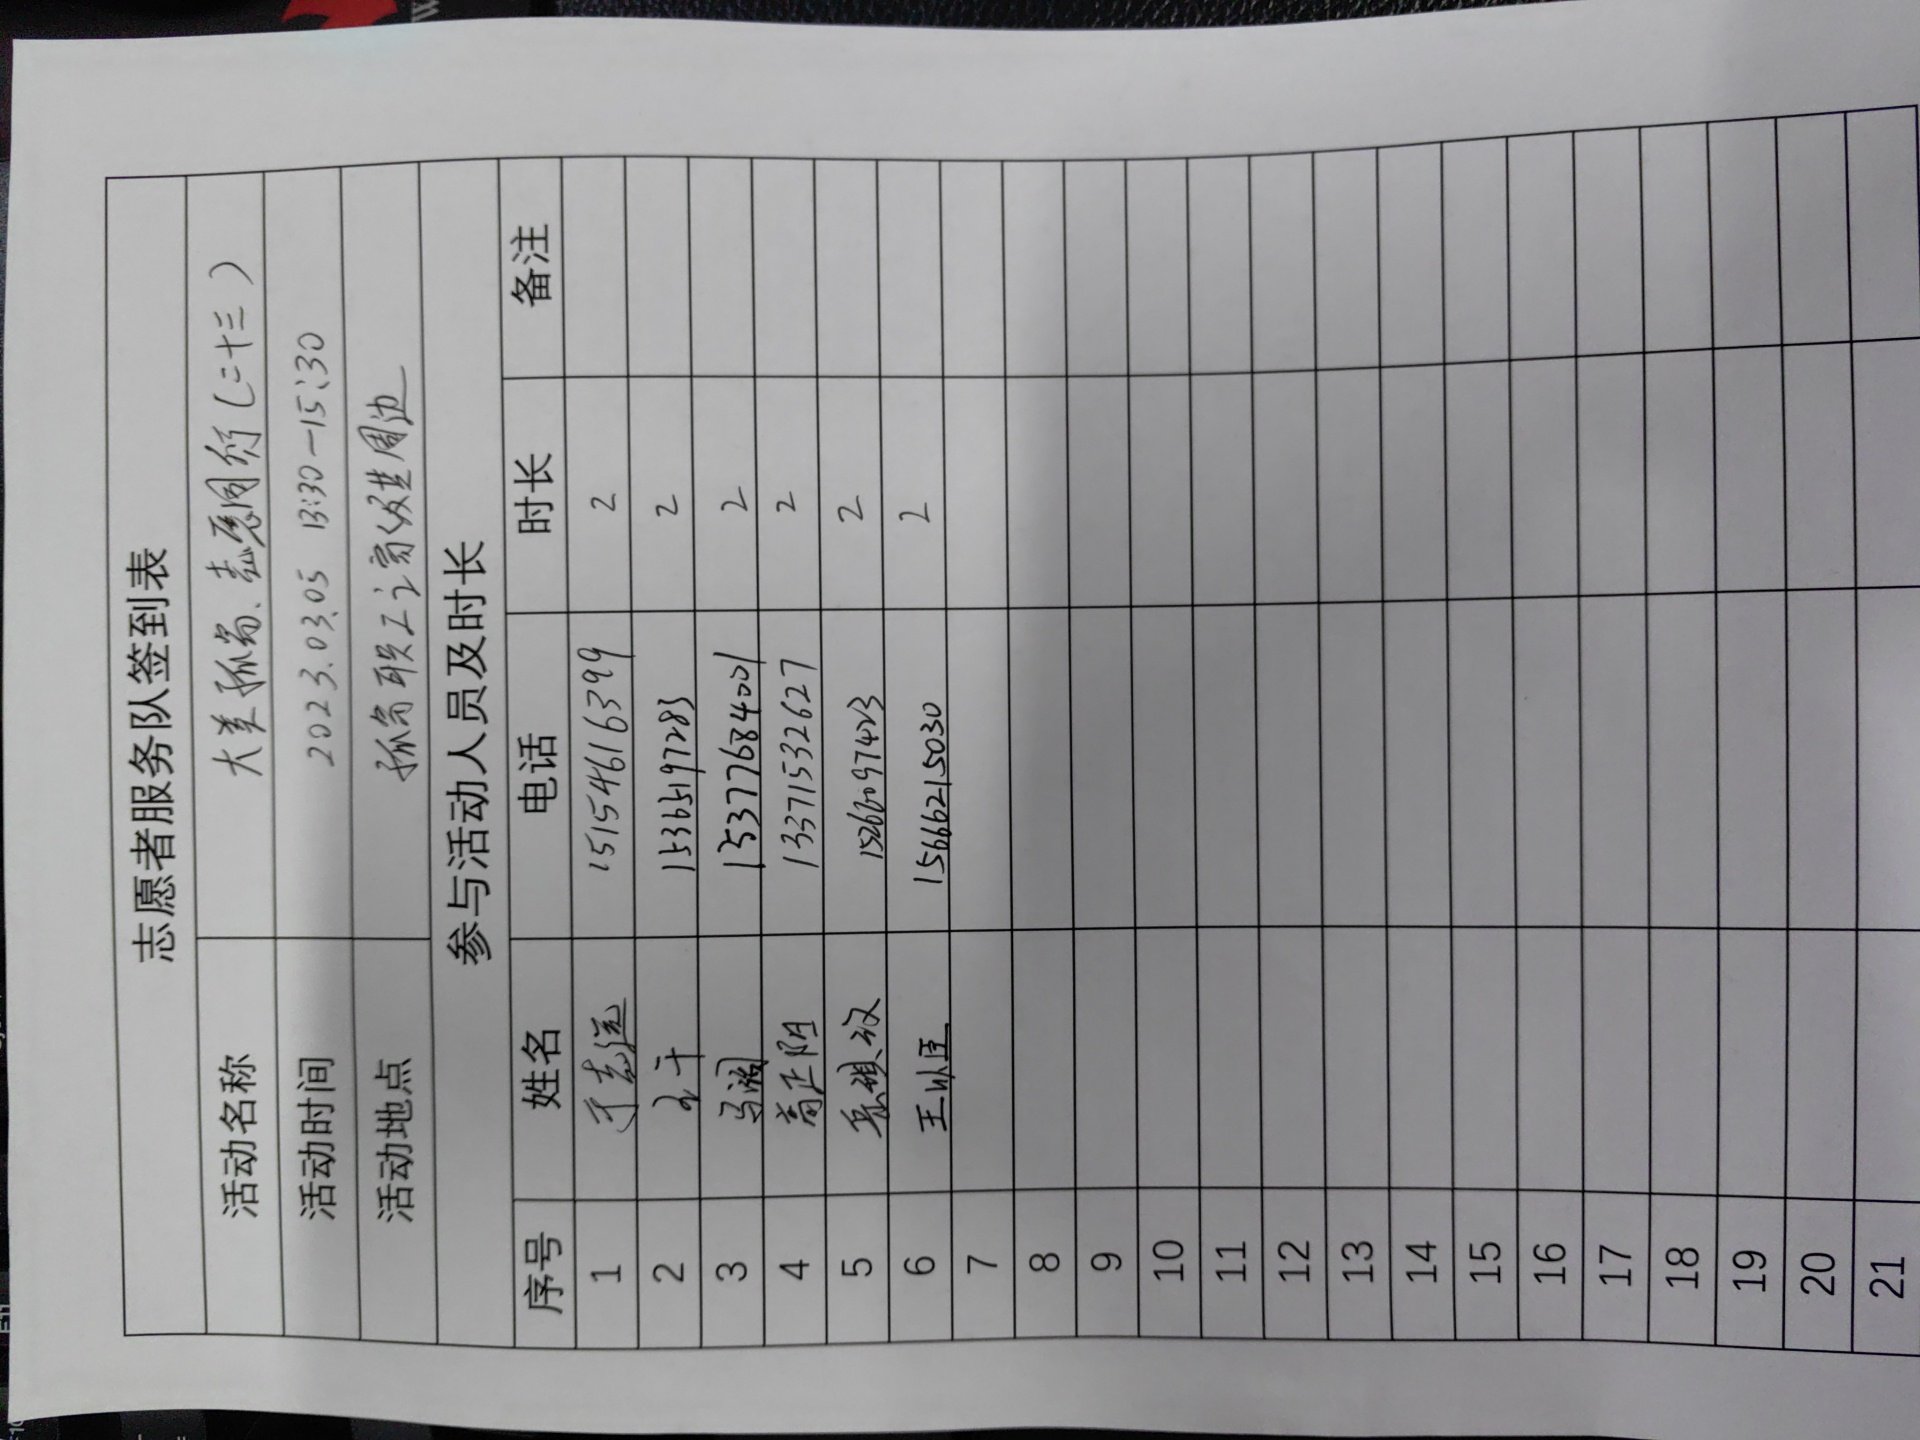 志愿者服务队签到表
活动名称 大美孤岛、志愿同行(二十三)
活动时间 2023.03.05 13:30-15:30
活动地点 孤岛职工之家及周边
参与活动人员及时长
序号 姓名 电话 时长 备注
1 于志远 15154616399 2
2 15365197283 2
3 马 15377684001 2
4 正阳 13371532627 2
5 15266097423 2
6 王以臣 15666215030 2
7
8
9
10
11
12
13
14
15
16
17
18
19
20
21